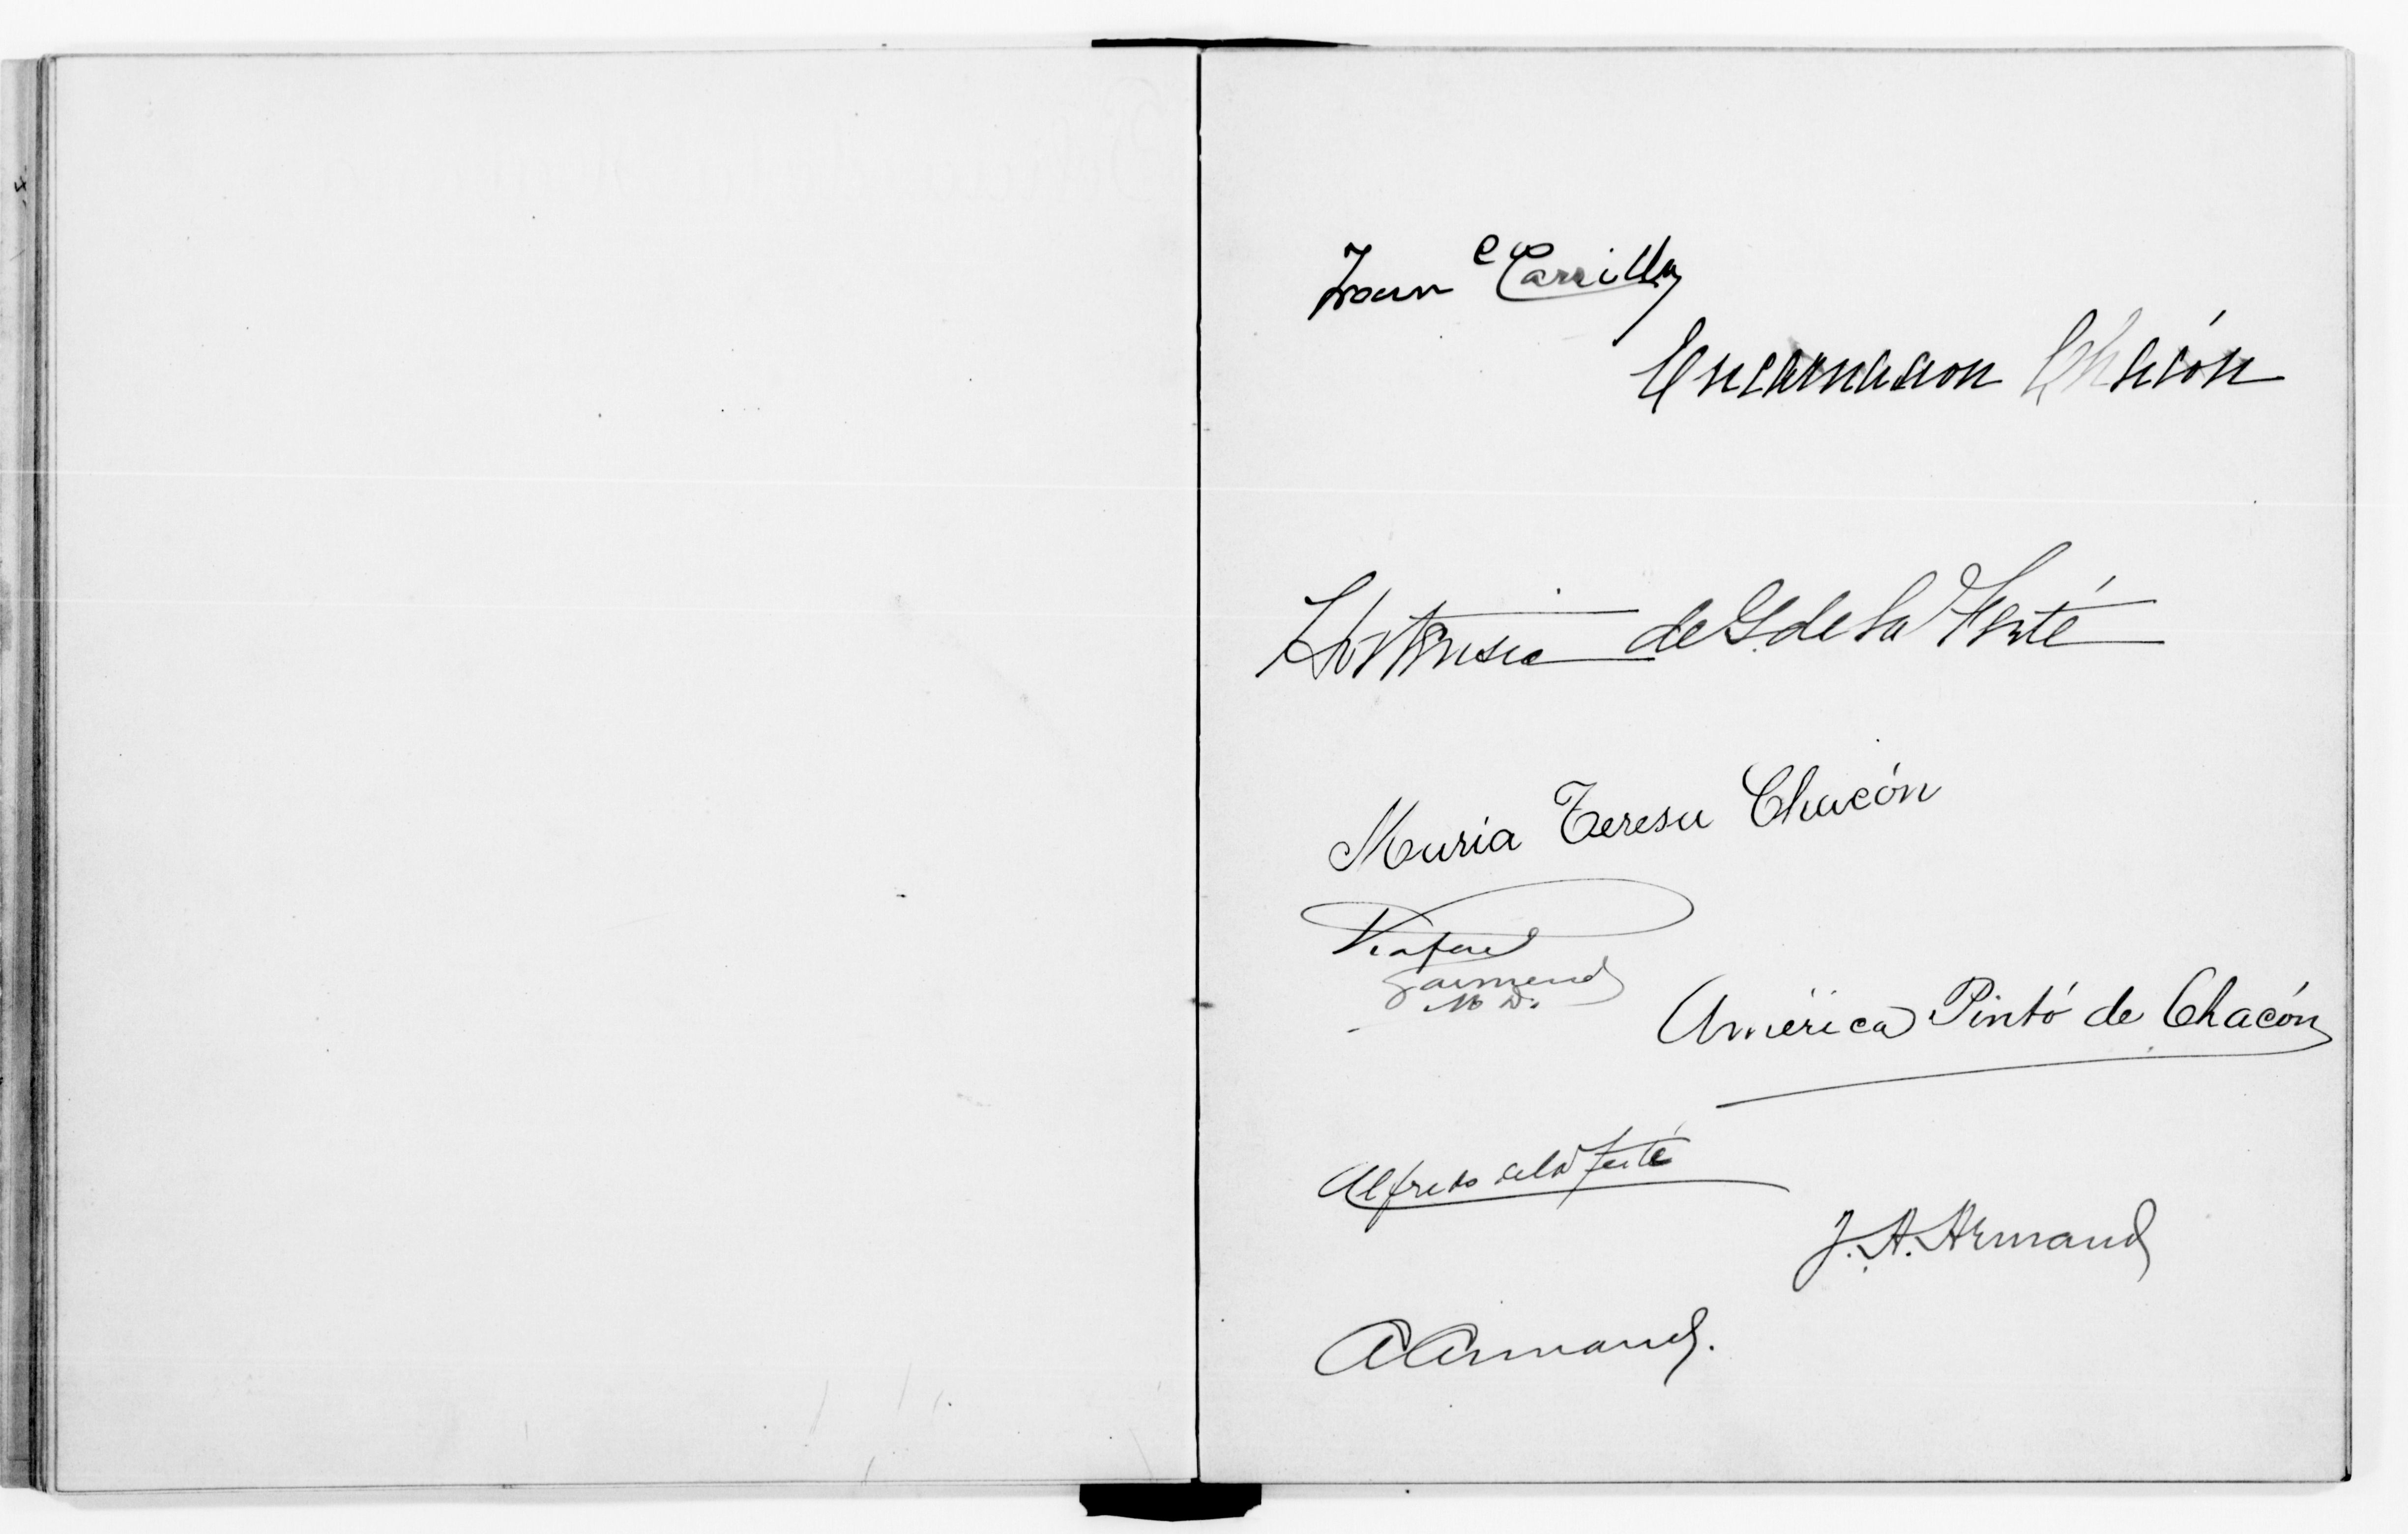 Juan C Carrillo
Encarnacion Chacón
Hortensia de G. de la Ferté
Maria Teresa Chacón
Rafael
M D.
América Pintó de Chacón
Alfredo de la Ferté
J. A. Armand
A Armand.